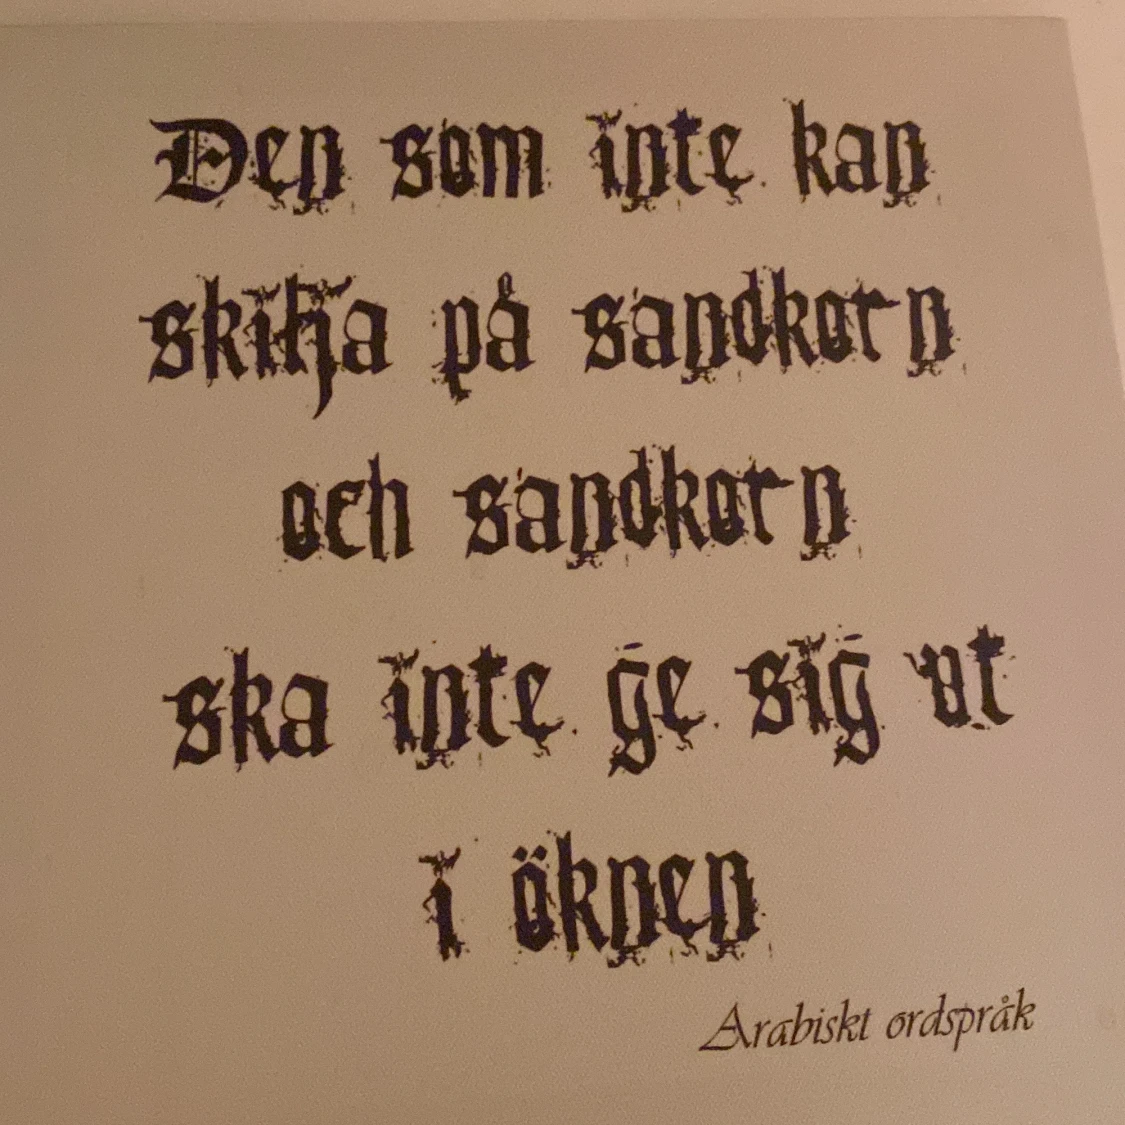 Den som inte kan
skilja på sandkorn
och sandkorn
ska inte ge sig ut
i öknen
Arabiskt ordspråk